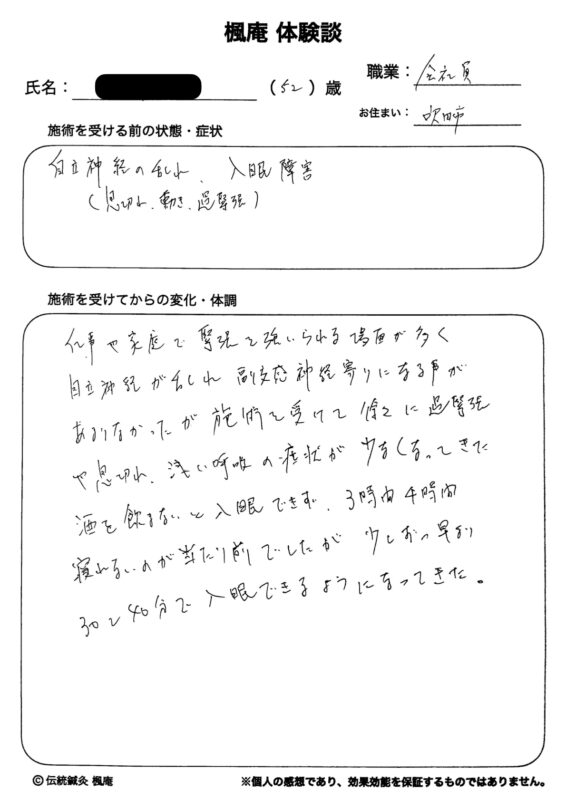 楓庵 体験談
氏名：
（52）歳
職業：会社員
お住まい：吹田市
施術を受ける前の状態・症状
自立神経の乱れ、入眠障害
（息切れ、動き、過緊張）
施術を受けてからの変化・体調
仕事や家庭で緊張を強いられる場面が多く
自立神経が乱れ副交感神経寄りになる事が
あまりなかったが施術を受けて徐々に過緊張
や息切れ、浅い呼吸の症状が少なくなってきた
酒を飲まないと入眠できず、3時間4時間
寝れないのが当たり前でしたが少しずつ早まり
30〜40分で入眠できるようになってきた。
©伝統鍼灸 楓庵
※個人の感想であり、効果効能を保証するものではありません。